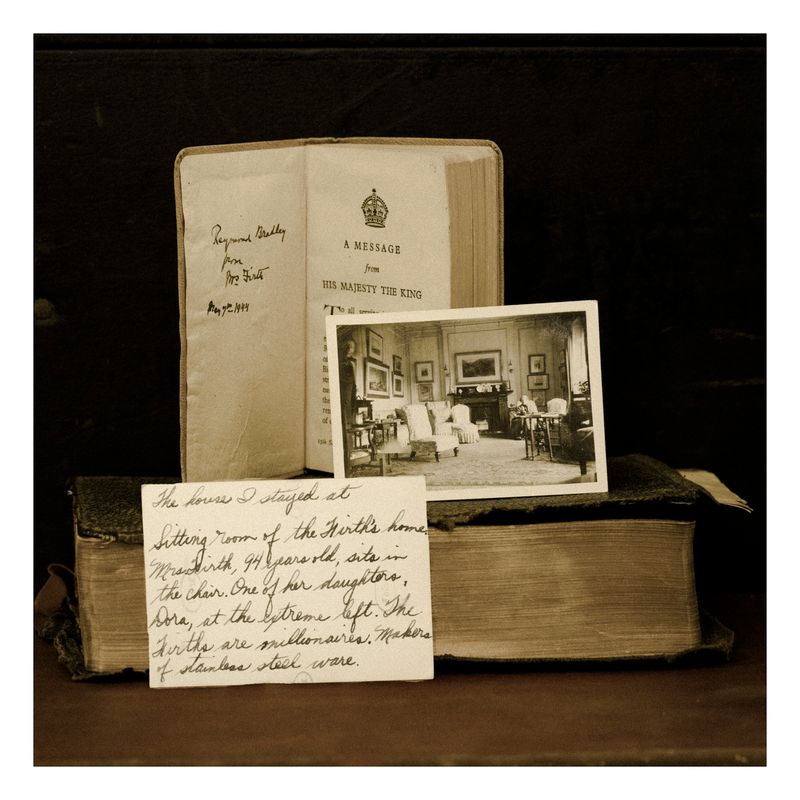 Raymond Bradley
from
Mrs Firth
May 7th 1944
A MESSAGE
from
HIS MAJESTY THE KING
To all serving
The house I stayed at
Sitting room of the Firth's home.
Mrs. Firth, 94 years old, sits in
the chair. One of her daughters,
Dora, at the extreme left. The
Firths are millionaires. Makers
of stainless steel ware.